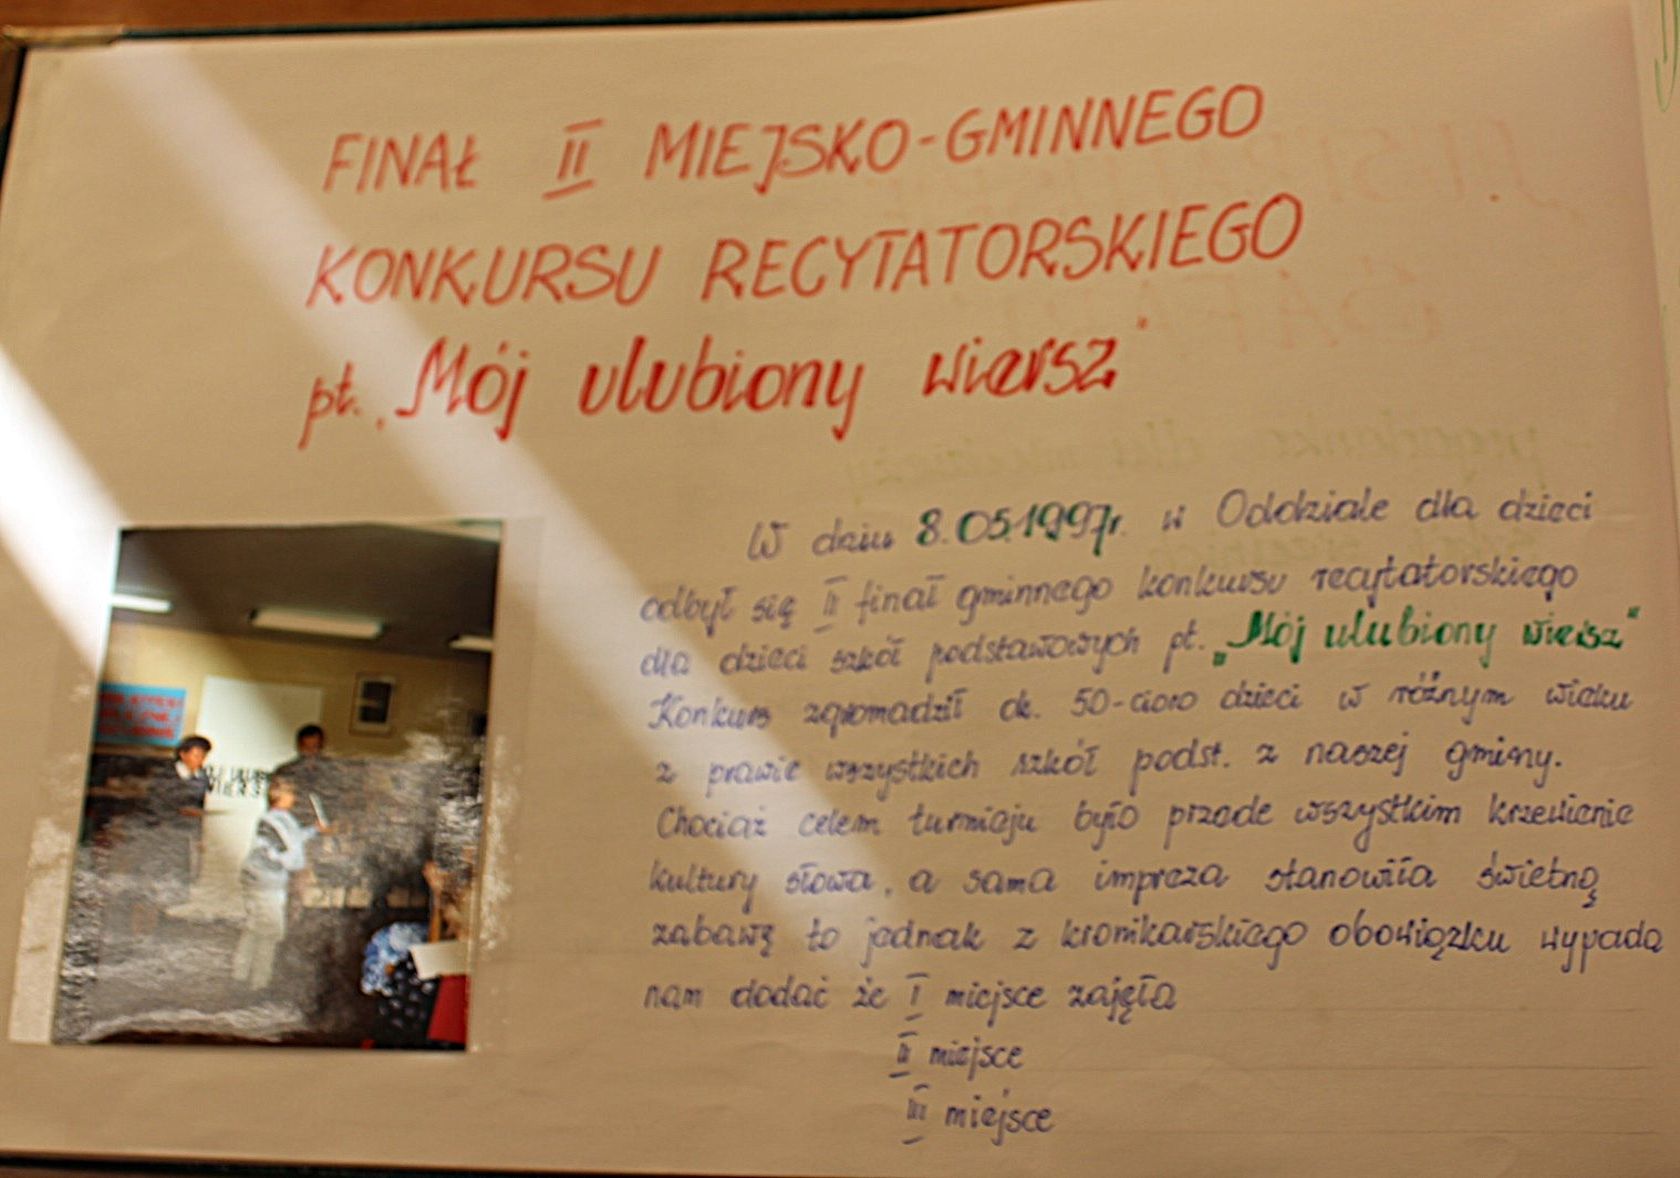 FINAŁ II MIEJSKO-GMINNEGO
KONKURSU RECYTATORSKIEGO
pt. „Mój ulubiony wiersz"
W dniu 8.05.1997r. w Oddziale dla dzieci
odbył się II finał gminnego konkursu recytatorskiego
dla dzieci szkół podstawowych pt. „Mój ulubiony wiersz"
Konkurs zgromadził ok. 50-cioro dzieci w różnym wieku
z prawie wszystkich szkół podst. z naszej gminy.
Chociaż celem turnieju było przede wszystkim krzewienie
kultury słowa, a sama impreza stanowiła świetną
zabawę to jednak z kronikarskiego obowiązku wypada
nam dodać że I miejsce zajęła
II miejsce
III miejsce